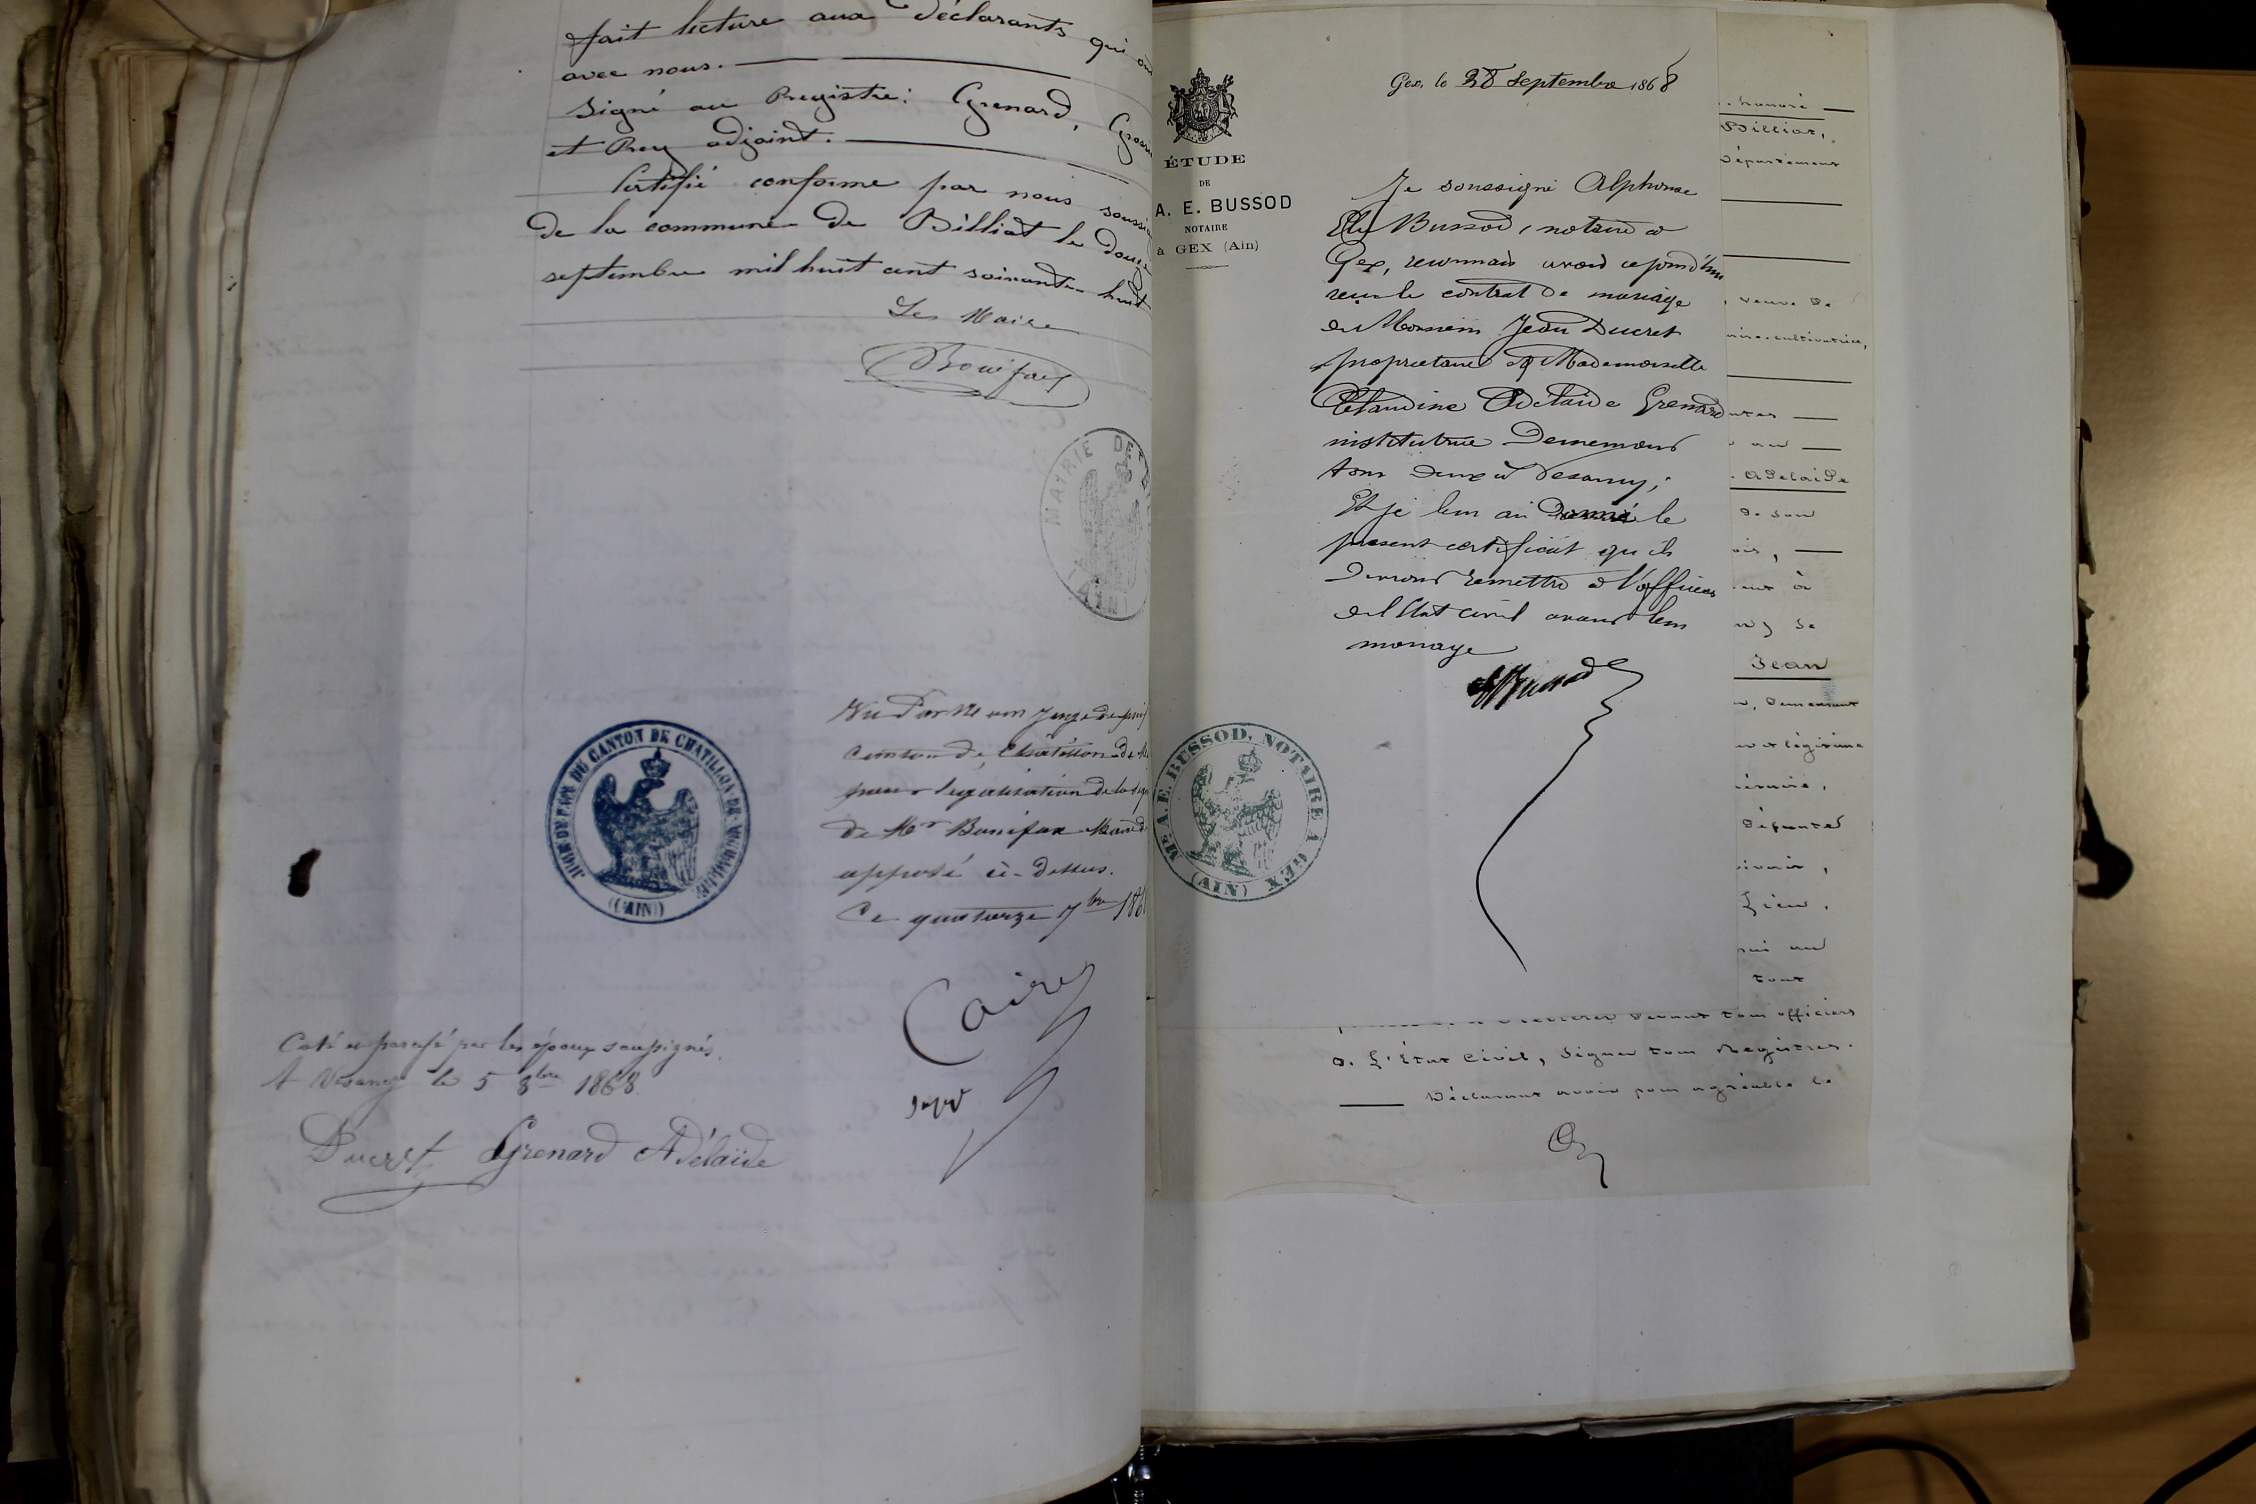 fait lecture aux déclarants qui
avec nous.
Signé au Registre: Grenard,
et Rey adjoint.
Certifié conforme par nous
de la commune de Billiat le douze
septembre mil huit cent soixante huit
Le Maire
Bonifax
MAIRIE DE
(AIN)
Vu par Nous Juge de paix
Canton de Chatillon de
pour légalisation de la
de Mr Bonifax Maire
apposé ci-dessus.
Ce quatorze 7bre 186
JUGE DE PAIX DU CANTON DE CHATILLON DE MICHAILLE
(AIN)
Caire
Coté et parafé par les époux soussignés.
A Vesancy le 5 8bre 1868.
Ducret Grenard Adélaïde
Gex, le 28 Septembre 1868
ÉTUDE
DE
A. E. BUSSOD
NOTAIRE
à GEX (Ain)
Je soussigné Alphonse
Elie Bussod, notaire à
Gex, reconnais avoir ce jourd'hui
reçu le contrat de mariage
de Monsieur Jean Ducret
propriétaire et Mademoiselle
Claudine Adelaide Grenard
institutrice Demeurant
tous deux à Vesancy;
Et je leur ai Donné le
présent certificat qu'ils
devront remettre à l'officier
de l'Etat civil avant leur
mariage
Bussod
Me A. E. BUSSOD, NOTAIRE A GEX
(AIN)
Billiat,
Département
veuve de
cultivatrice,
au
Adelaide
de son
à
de
Jean
Demeurant
et légitime
Défunte
Lieu,
au
tout
devant tous officiers
de l'État Civil, Signer tous Registres.
Déclarant avoir pour agréable le